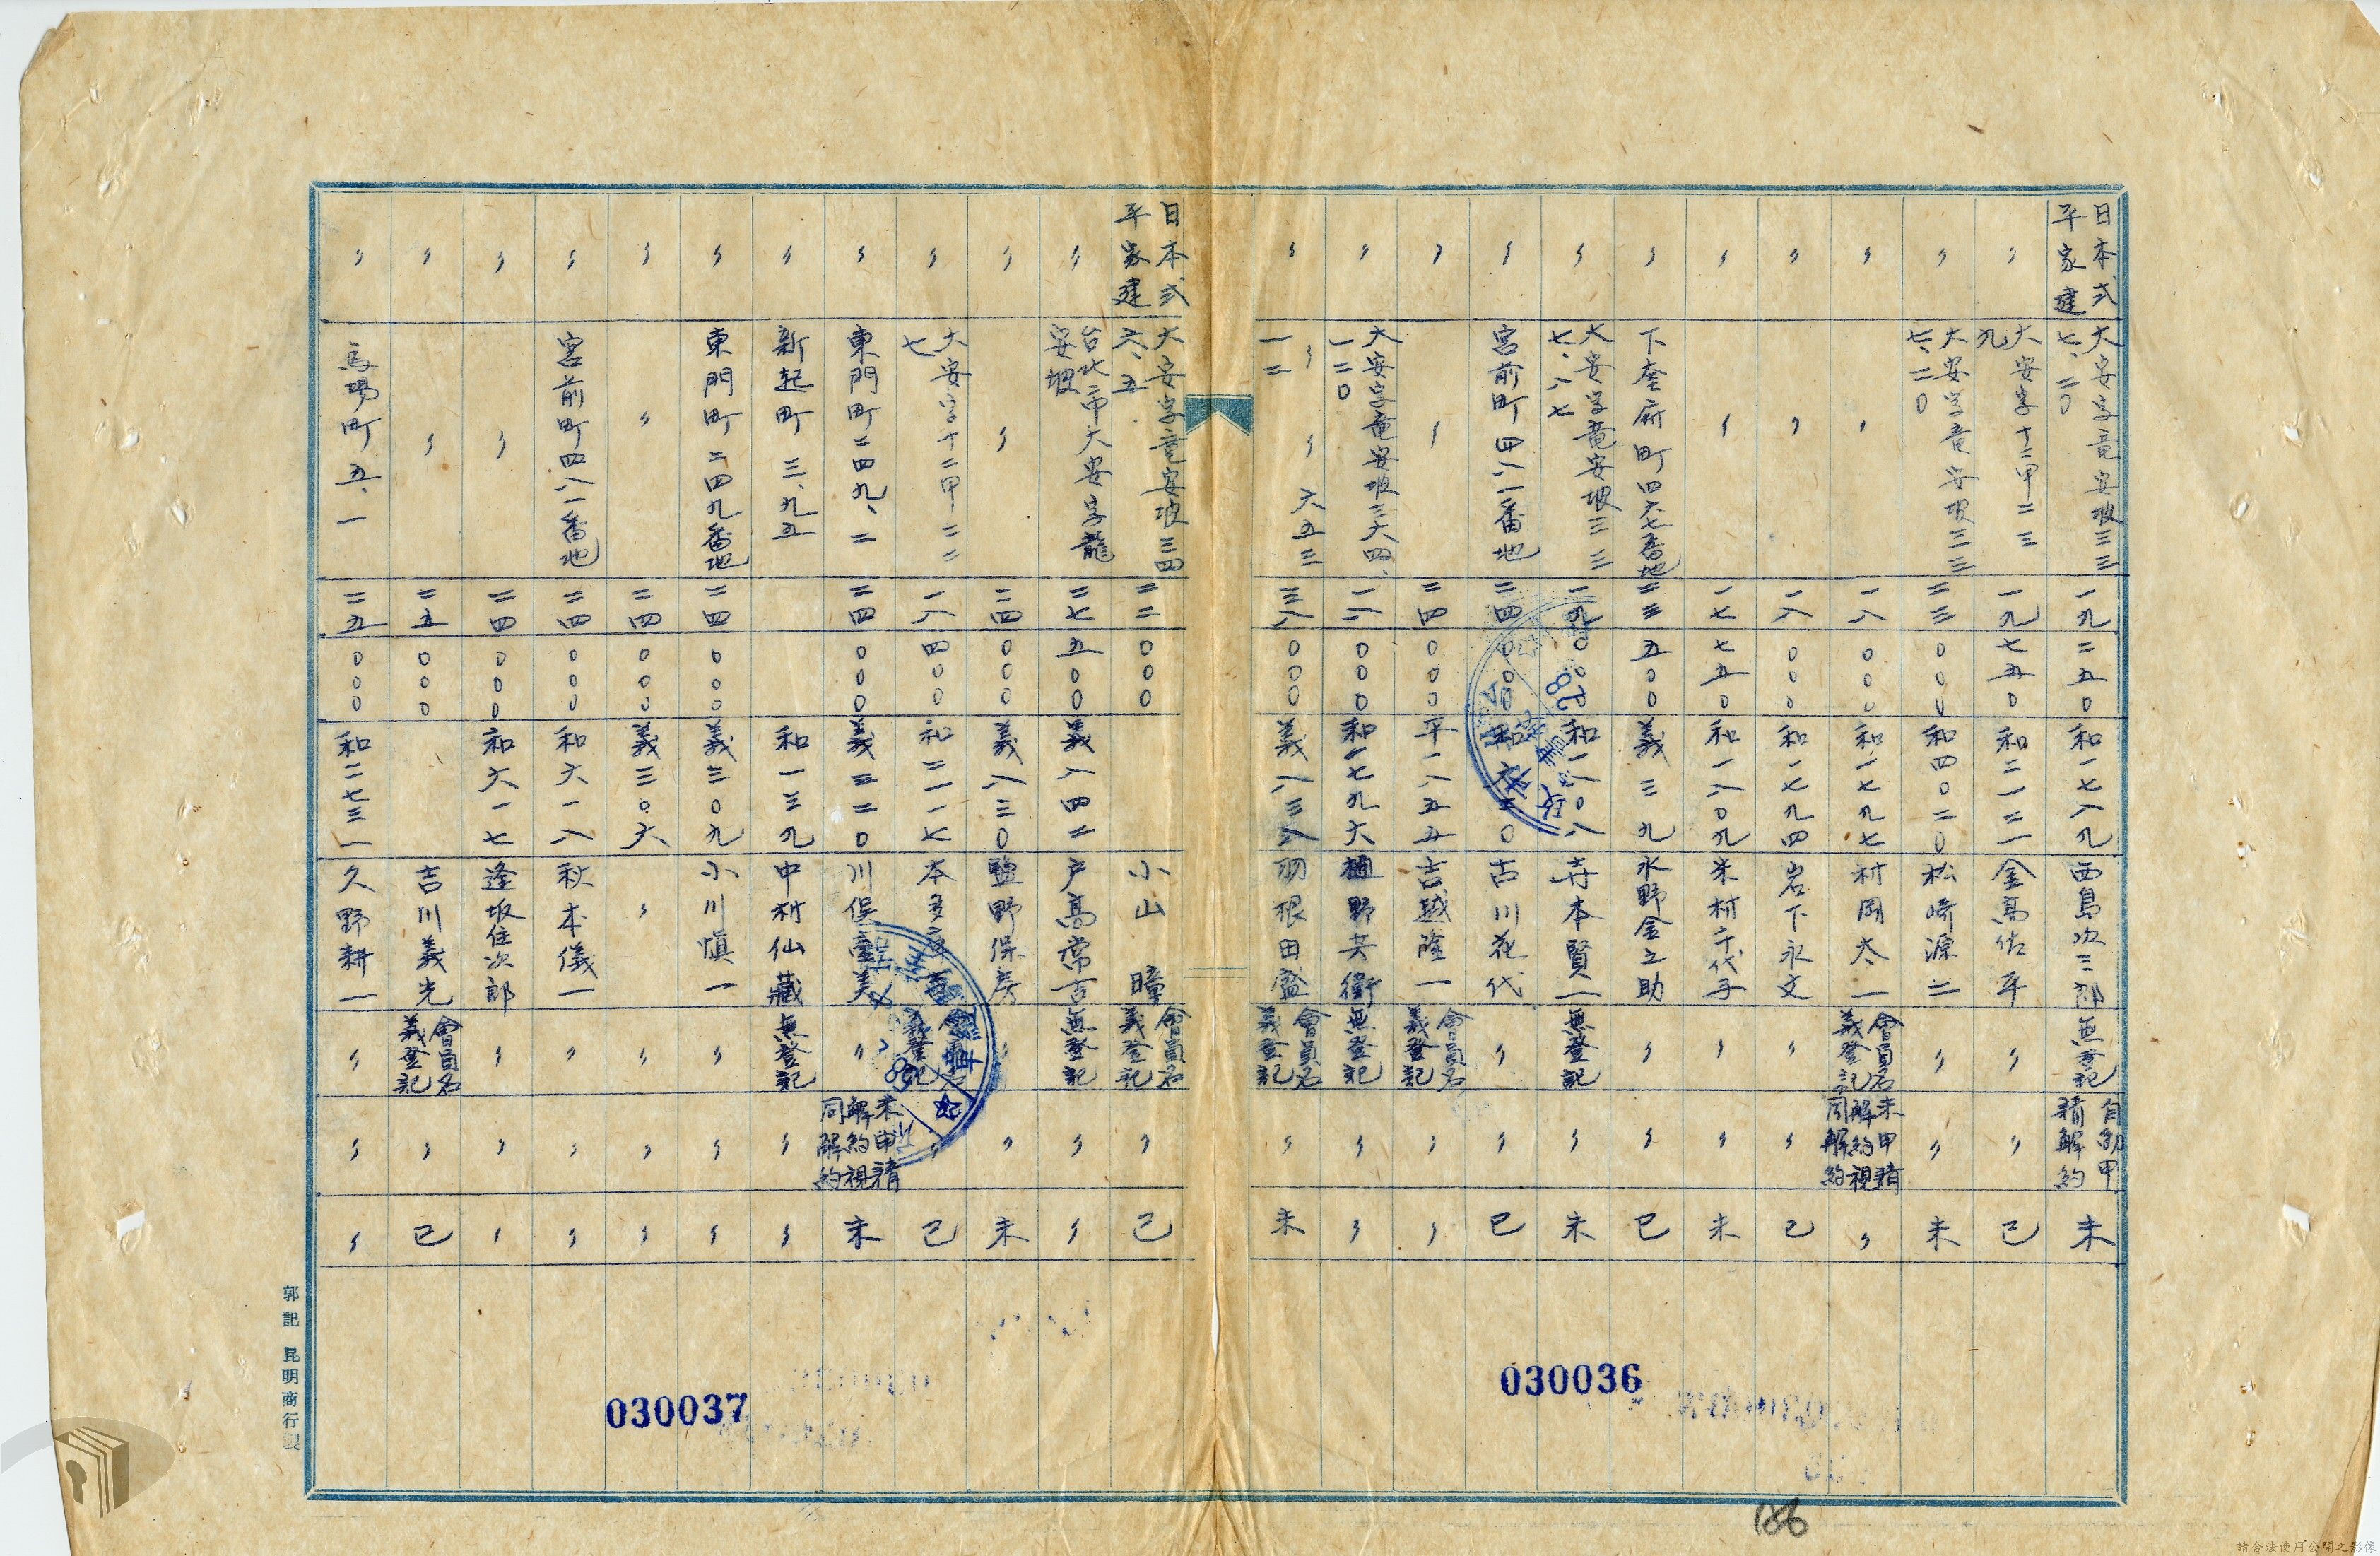 日本式平家建 大安字竜安坡三三七、二〇 一九 二五〇 和一七八九 西島次三郎 無登記 自動申請解約 未
〃 大安字十二甲二三九 一九 七五〇 和二一二一 金高佐平 〃 〃 已
〃 大安字竜安坡三三七、二〇 二三 〇〇〇 和四〇二〇 松崎源二 〃 〃 未
〃 〃 一八 〇〇〇 和一七九七 村岡太一 會員名義登記 未申請解約視同解約 〃
〃 〃 一八 〇〇〇 和一七九四 岩下永文 〃 〃 已
〃 〃 一七 七五〇 和一八〇九 米村千代子 〃 〃 未
〃 下奎府町四六七番地 二三 五〇〇 義三九 水野金之助 〃 〃 已
〃 大安字竜安坡三三七、八七 一九 〇〇〇 和一八〇八 寺本賢一 無登記 〃 未
〃 宮前町四八一番地 二四 〇〇〇 和六二〇 古川花代 〃 〃 已
〃 〃 二四 〇〇〇 平一八五五 吉越隆一 會員名義登記 〃 〃
〃 大安字竜安坡三六四、一二〇 一八 〇〇〇 和一七九六 樋野共衛 無登記 〃 〃
〃 〃 〃 六五三一二 三八 〇〇〇 義八三八 羽根田盛 會員名義登記 〃 未
030036
日本式平家建 大安字竜安坡三四六、五 二二 〇〇〇 小山暲 會員名義登記 〃 已
〃 台北市大安字龍安坡 二七 五〇〇 義八四二 戸高常吉 無登記 〃 〃
〃 〃 二四 〇〇〇 義八三〇 塩野保房 〃 〃 未
〃 大安字十二甲二二七 一八 四〇〇 和二一一七 本多 義登記 〃 已
〃 東門町二四九、二 二四 〇〇〇 義三二〇 川俣重美 〃 未申請解約視同解約 未
〃 新起町三、九五 和一三九 中村仙藏 無登記 〃 〃
〃 東門町二四九番地 二四 〇〇〇 義三〇九 小川愼一 〃 〃 〃
〃 〃 二四 〇〇〇 義三〇六 〃 〃 〃 〃
〃 宮前町四八一番地 二四 〇〇〇 和六一八 秋本儀一 〃 〃 〃
〃 〃 二四 〇〇〇 和六一七 逢坂住次郎 〃 〃 〃
〃 〃 二五 〇〇〇 吉川義光 會員名義登記 〃 已
〃 馬場町五、一 二五 〇〇〇 和二七三一 久野耕一 〃 〃 〃
030037
郭記 昆明商行製
186
請合法使用公開之影像